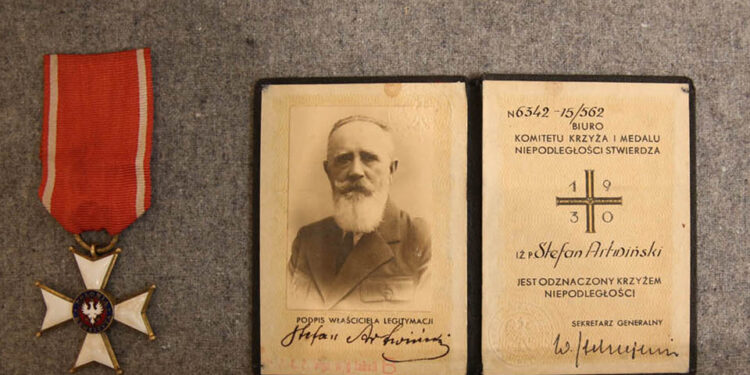 PODPIS WŁAŚCICIELA LEGITYMACJI
Stefan Artwiński
N 6342-15/562
BIURO
KOMITETU KRZYŻA I MEDALU
NIEPODLEGŁOŚCI STWIERDZA
19
30
IŻ P. Stefan Artwiński
JEST ODZNACZONY KRZYŻEM
NIEPODLEGŁOŚCI
SEKRETARZ GENERALNY